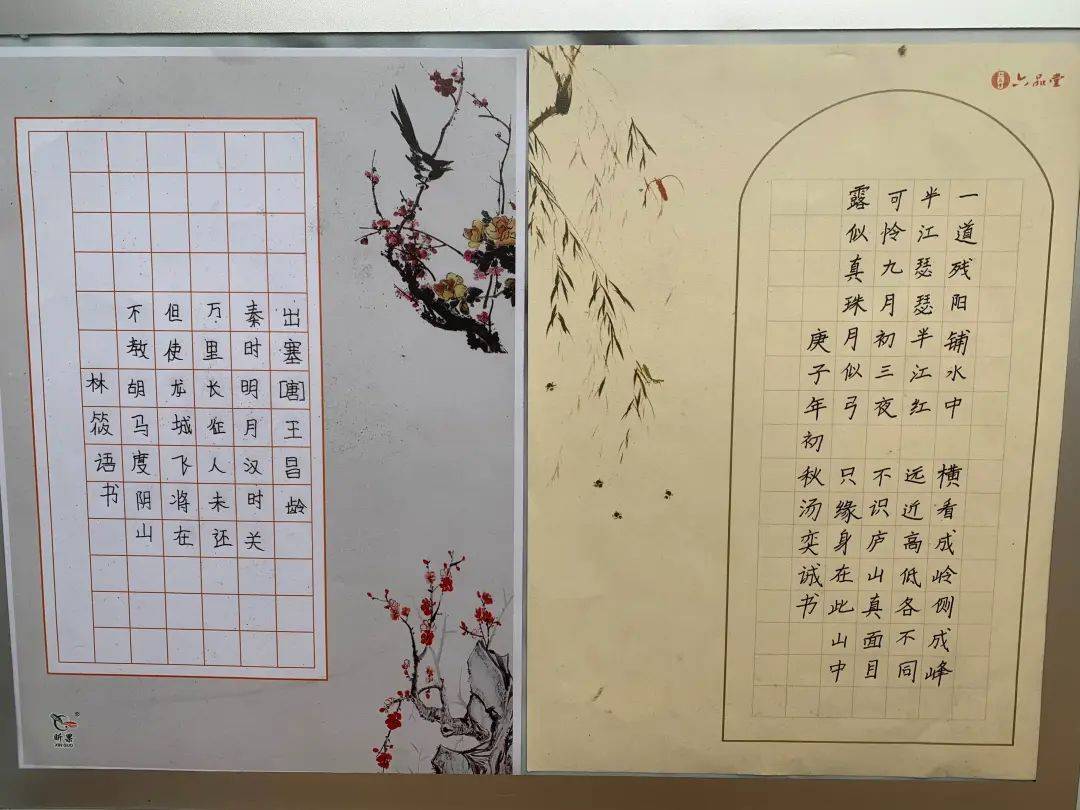 出塞[唐]王昌龄
秦时明月汉时关
万里长征人未还
但使龙城飞将在
不教胡马度阴山
林筱语书
昕果
XIN GUO
六品堂
一道残阳铺水中
半江瑟瑟半江红
可怜九月初三夜
露似真珠月似弓
横看成岭侧成峰
远近高低各不同
不识庐山真面目
只缘身在此山中
庚子年初秋汤奕诚书